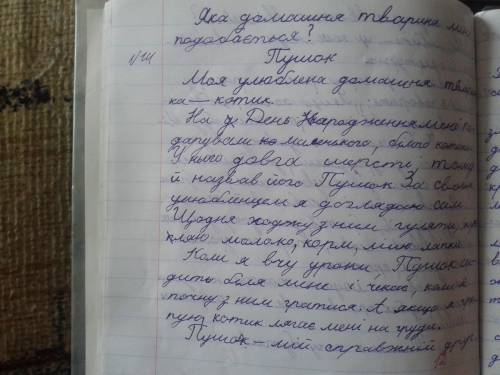 Яка домашня тварина мені
подобається?
Пушок
Моя улюблена домашня твари
ка — котик.
На День Народження мені по
дарували маленького, білого котика.
У нього довга шерсть, тому
й назвав його Пушок. За своїм
улюбленцем я доглядаю сам.
Щодня ходжу з ним гуляти,
молоко, корм, мию лапки.
Коли я вчу уроки, Пушок си
дить біля мене і чекає, коли я
почну з ним гратися. А якщо я
котик лягає мені на груди.
Пушок — мій справжній друг
12